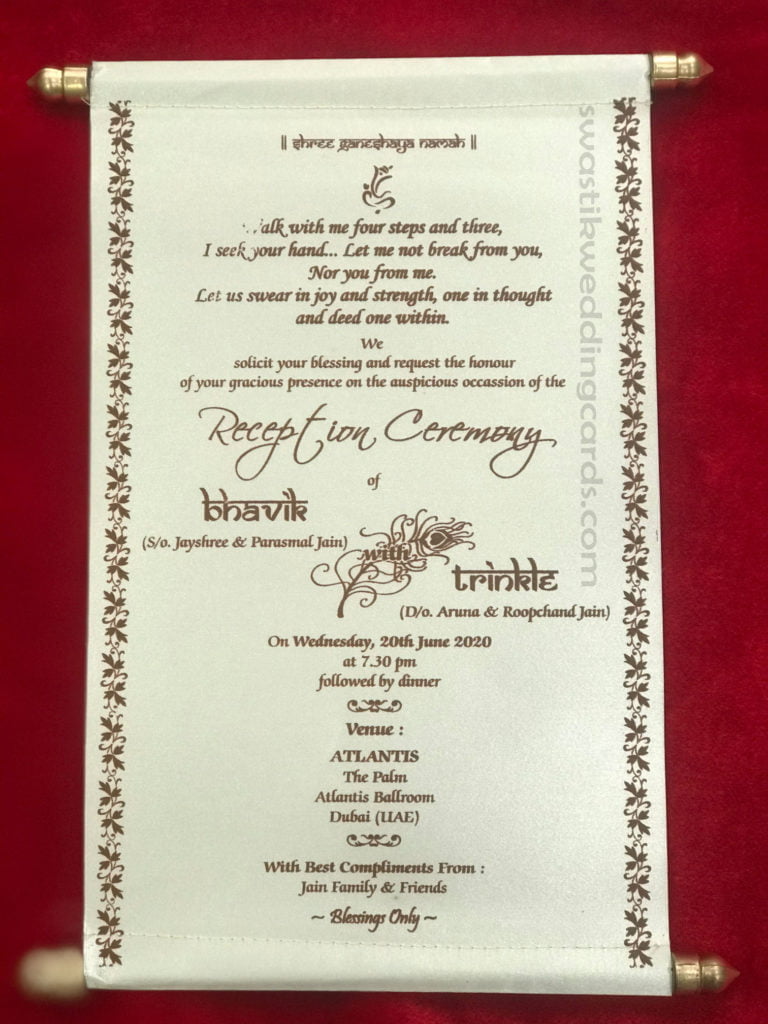 || shree ganeshaya namah ||
Walk with me four steps and three,
I seek your hand... Let me not break from you,
Nor you from me.
Let us swear in joy and strength, one in thought
and deed one within.
We
solicit your blessing and request the honour
of your gracious presence on the auspicious occassion of the
Reception Ceremony
of
bhavik
(S/o. Jayshree & Parasmal Jain)
with
trinkle
(D/o. Aruna & Roopchand Jain)
On Wednesday, 20th June 2020
at 7.30 pm
followed by dinner
Venue :
ATLANTIS
The Palm
Atlantis Ballroom
Dubai (UAE)
With Best Compliments From :
Jain Family & Friends
~ Blessings Only ~
swastikweddingcards.com